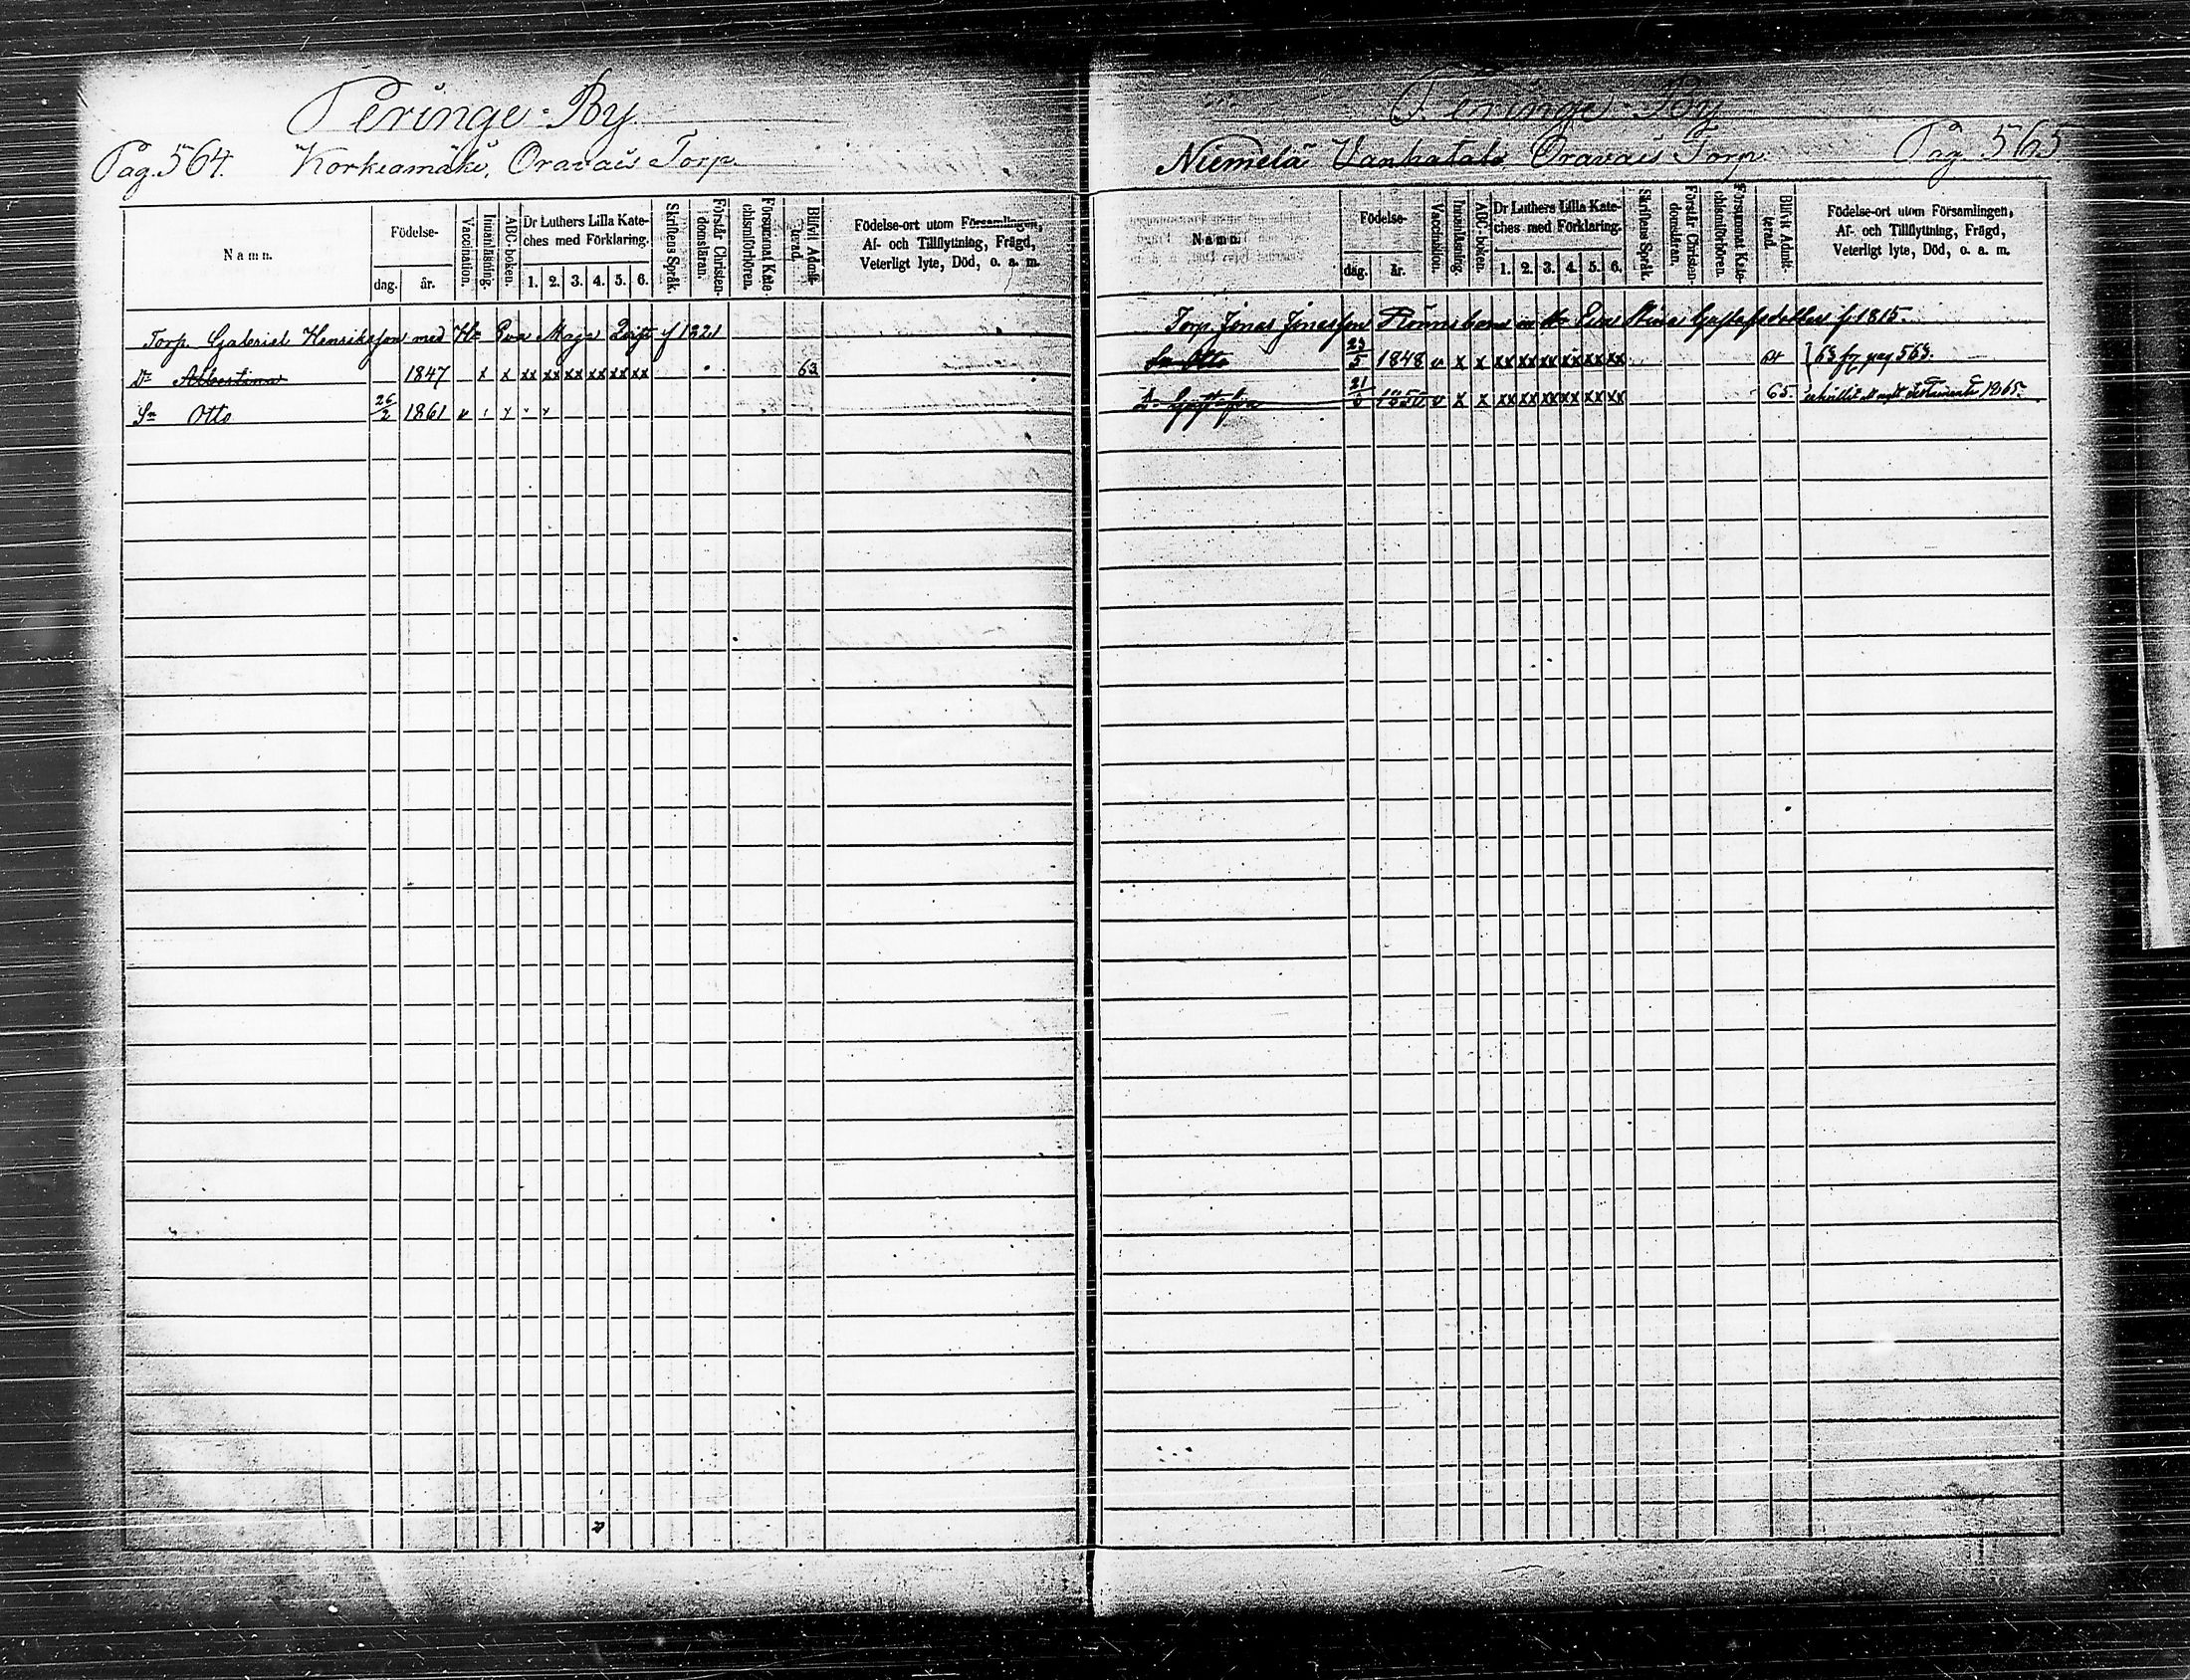 Peringe By
Pag. 564. Korkeamäki, Oravais Torp
Namn.
Födelse-
dag. år.
Vaccination.
Innanläsning.
ABC-boken.
Dr Luthers Lilla Kateches med Förklaring.
1. 2. 3. 4. 5. 6.
Skriftens Språk.
Förstår Christendomsläran.
Försummat Katechismiförhören.
Blifvit Admitterad.
Födelse-ort utom Församlingen,
Af- och Tillflyttning, Frägd,
Veterligt lyte, Död, o. a. m.
Torp. Gabriel Henriksson med Hu Eva Maja f 1821
Dr Albertina 1847 x x xx xx xx xx xx xx 63
Sn Otto 26/2 1861 v
Peringe By
Niemelä Vanhatalo, Oravais Torp. Pag. 565
Namn.
Födelse-
dag. år.
Vaccination.
Innanläsning.
ABC-boken.
Dr Luthers Lilla Kateches med Förklaring.
1. 2. 3. 4. 5. 6.
Skriftens Språk.
Förstår Christendomsläran.
Försummat Katechismiförhören.
Blifvit Admitterad.
Födelse-ort utom Församlingen,
Af- och Tillflyttning, Frägd,
Veterligt lyte, Död, o. a. m.
Torp. Jonas Jonasson Rönnsbom m Hu Eva Stina Gustafsdotter f. 1815.
Sn Otto 23/5 1848 v x x xx xx xx xx xx xx 63 fr pag 563.
1850 v x x xx xx xx xx xx xx 65. erhållit et nytt testamente 1865.